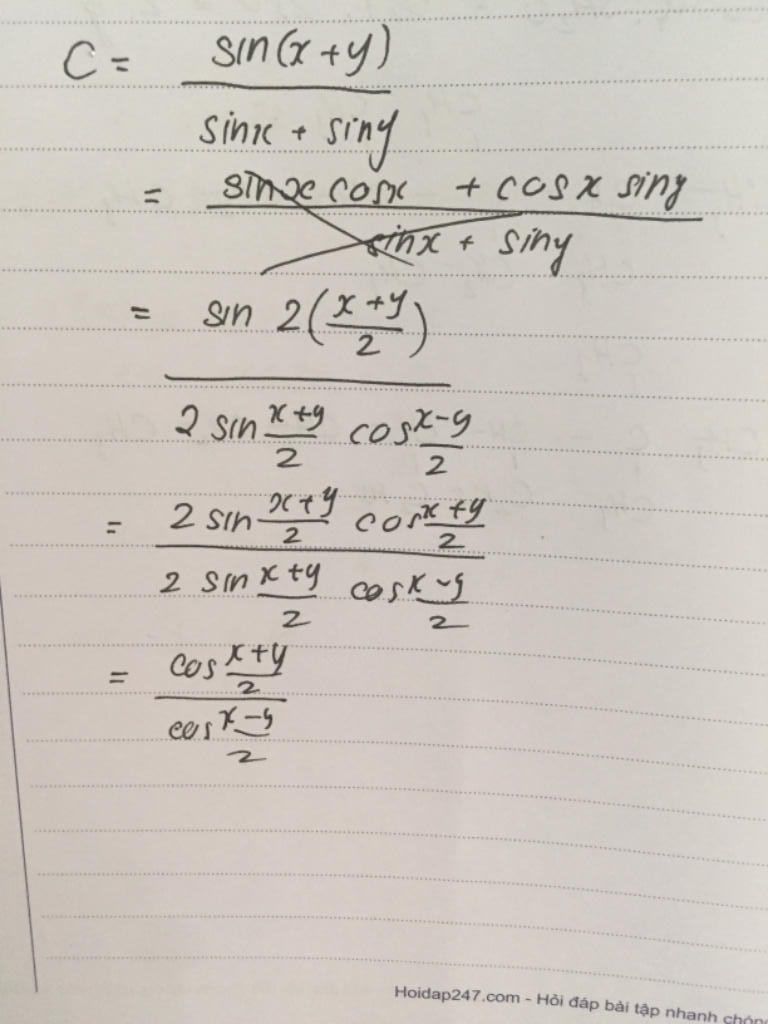 C = sin(x+y) / sinx + siny
= sinx cosx + cosx siny / sinx + siny
= sin 2(x+y/2) / 2 sin x+y/2 cos x-y/2
= 2 sin x+y/2 cos x+y/2 / 2 sin x+y/2 cos x-y/2
= cos x+y/2 / cos x-y/2
Hoidap247.com - Hỏi đáp bài tập nhanh